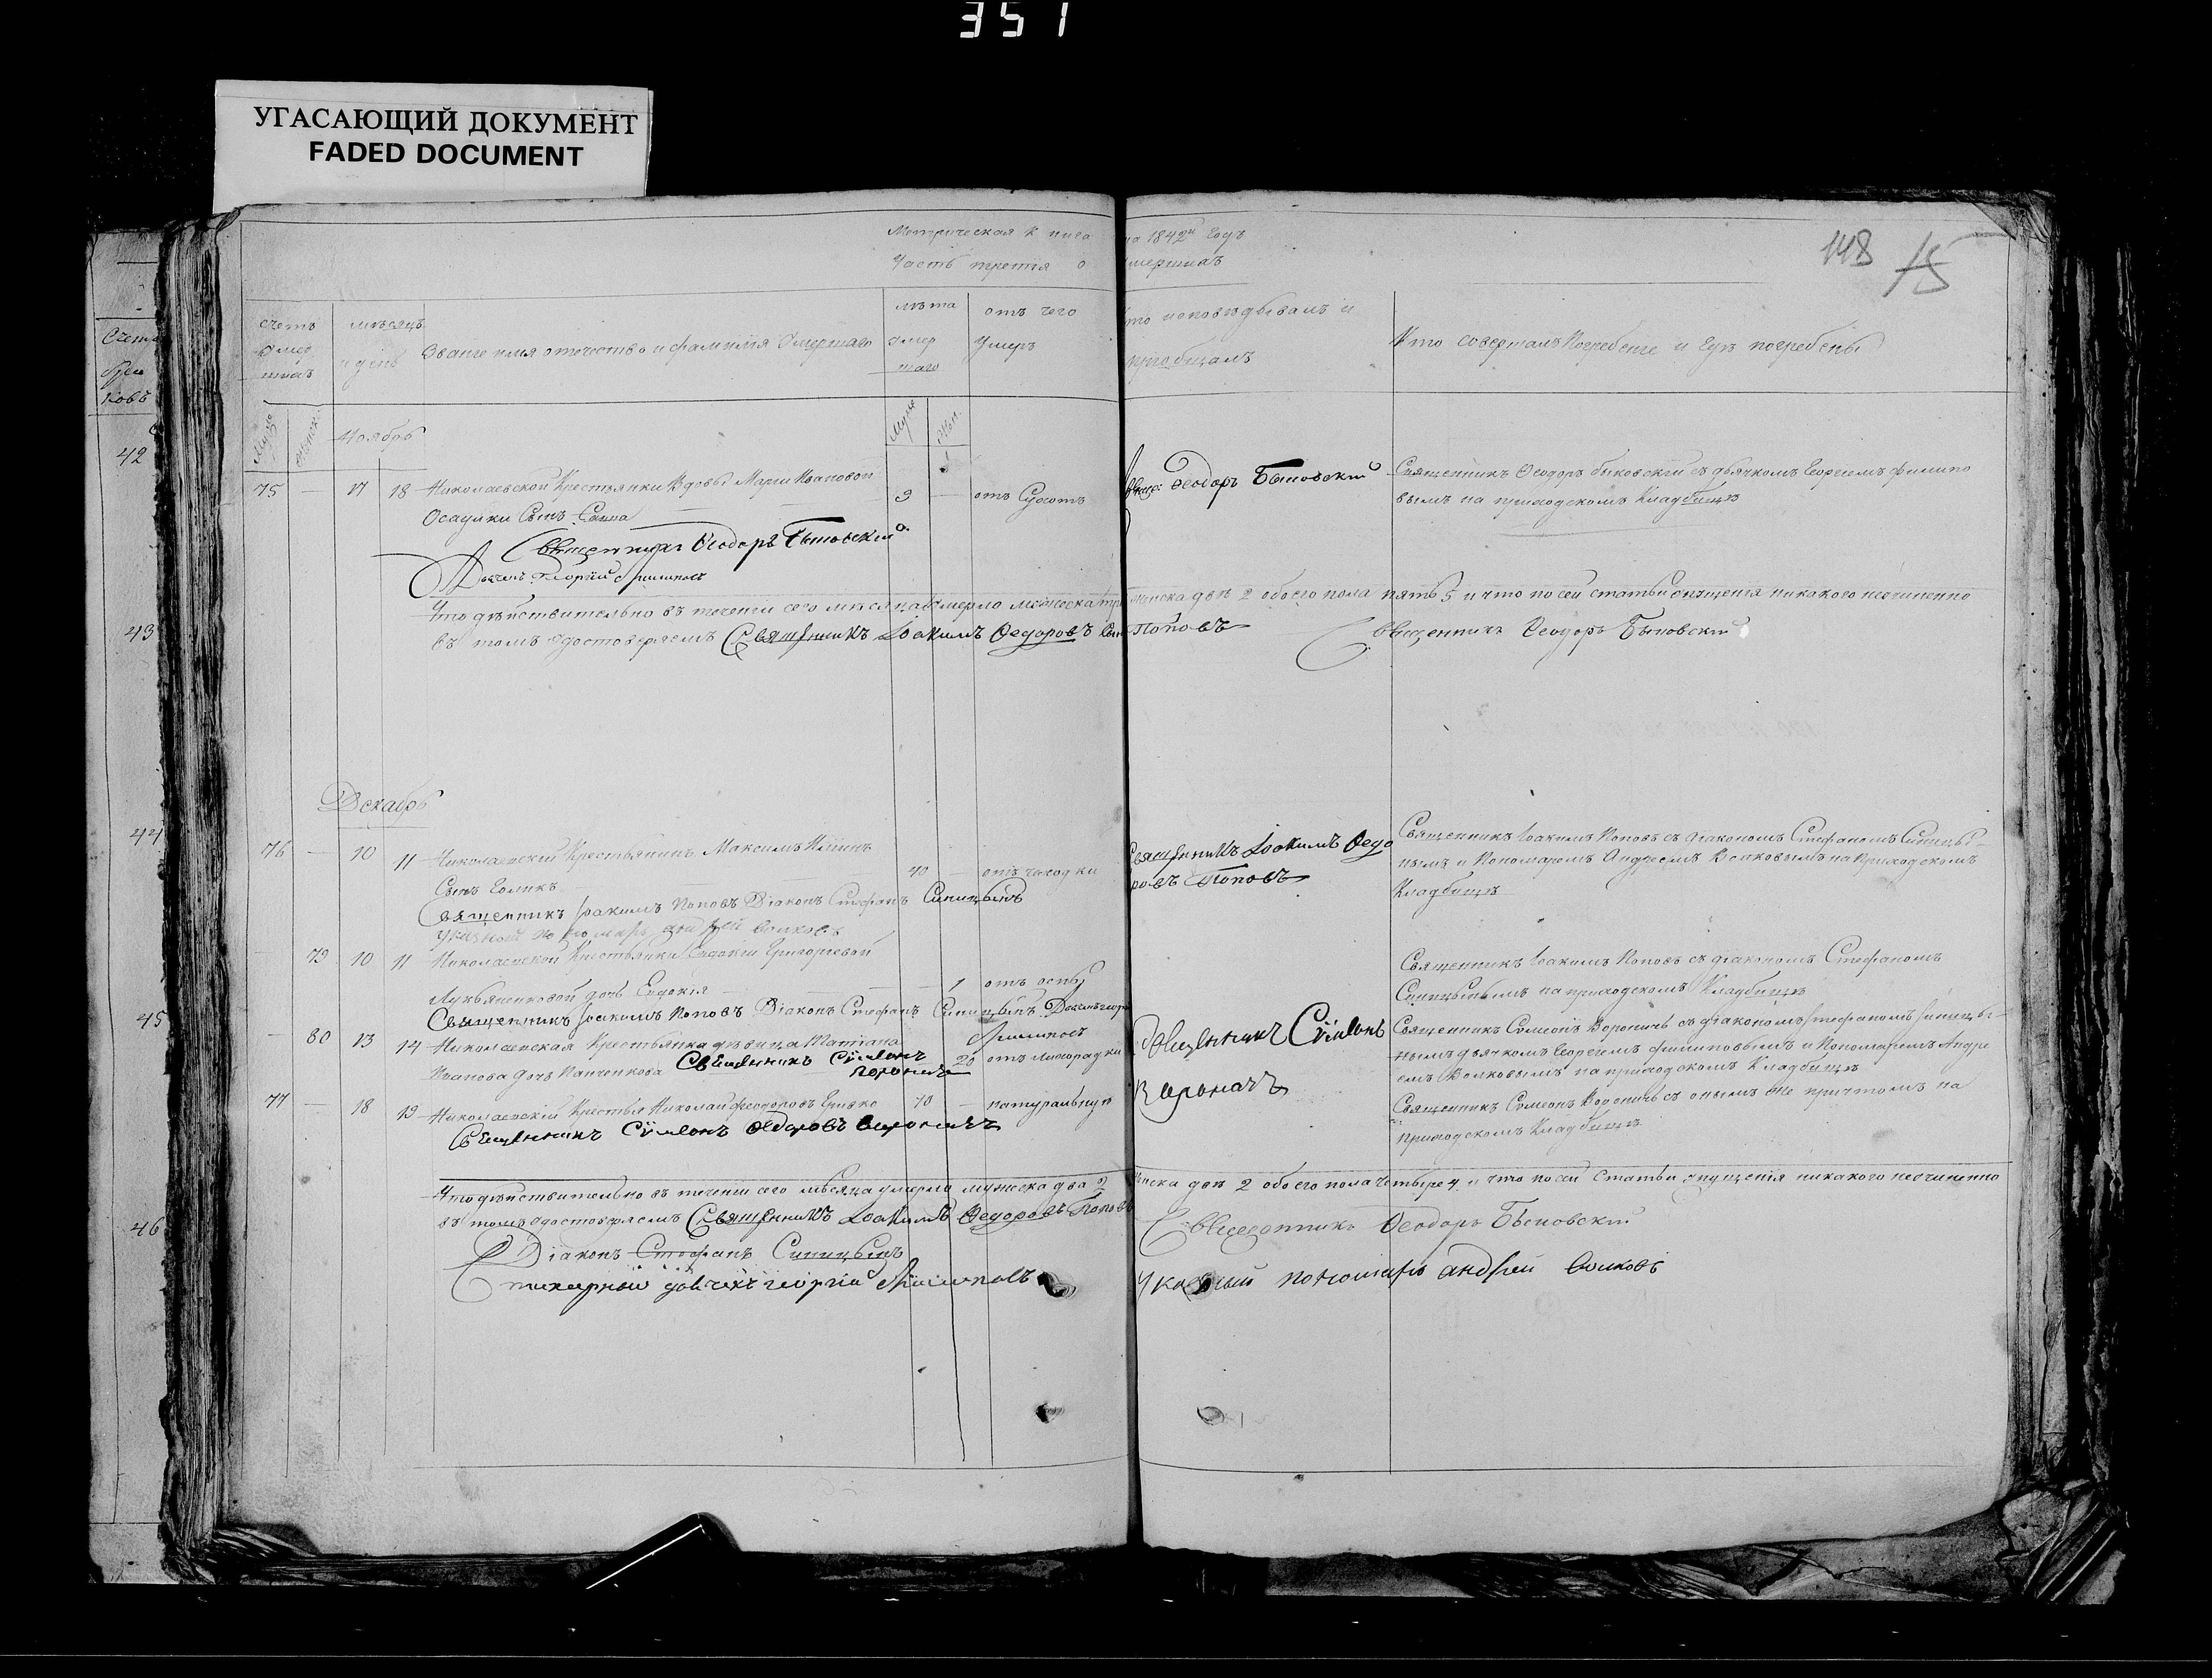 351
УГАСАЮЩИЙ ДОКУМЕНТ
FADED DOCUMENT
Метрическая книга на 1842й Годъ
Часть третія о умершихъ
148 15
Счетъ умершихъ
мѣсяцъ и день
Званіе имя отечество и фамилія Умершаго
лѣта умершаго
отъ чего умеръ
Кто исповѣдывалъ и пріобщалъ
Кто совершалъ Погребеніе и Гдѣ погребены
Муж Женск
Ноябрь
Муж Жен.
75 — 17 18 Николаевской Крестьянки Вдовы Маріи Ивановой
Осадчки Сынъ Савва 9 — отъ Сухотъ
Феодоръ Быковскій
Священникъ Феодоръ Быковскій съ дьячкомъ Георгіемъ Филипо
вымъ на приходскомъ Кладбищѣ
Священникъ Феодоръ Быковскій
Дьячекъ Георгій Филиповъ
Что дѣйствительно въ теченіи сего мѣсяца Умерло мужеска три женска двѣ 2 обоего пола пять 5 и что по сей статьи опущенія никакого неучиненно
въ томъ удостоверяемъ Священникъ Іоакимъ Федоровъ Сынъ Поповъ
Священникъ Феодоръ Быковскій
Декабрь
76 — 10 11 Николаевскій Крестьянинъ Максимъ
Сынъ Голикъ 40 — отъ чахотки
Священникъ Іоакимъ Федоровъ Поповъ
Священникъ Іоакимъ Поповъ съ діакономъ Стефаномъ Синицы-
нымъ и Пономаремъ Андреемъ Волковымъ на Приходскомъ
Кладбищѣ
Священникъ Іоакимъ Поповъ Діаконъ Стефанъ Синицынъ
Указной пономарь андрей волковъ
— 79 10 11 Николаевской Крестьянки Евдокіи Григорьевой
Лукьяненковой дочь Евдокія — 1 отъ оспы
Священникъ Іоакимъ Поповъ съ діакономъ Стефаномъ
Синицынымъ на приходскомъ Кладбищѣ
Священникъ Іоакимъ Поповъ Діаконъ Стефанъ Синицынъ
Филиповъ
— 80 13 14 Николаевская Крестьянка дѣвица Татіана
Иванова дочь Панченкова 20 отъ лихорадки
Священникъ Сѵмеонъ Вороничъ
Священникъ Сѵмеонъ Вороничъ
Священникъ Симеонъ Вороничъ съ діакономъ Стефаномъ Синицы-
нымъ дьячкомъ Георгіемъ Филиповымъ и Пономаремъ Андре
емъ Волковымъ на приходскомъ Кладбищѣ
77 — 18 19 Николаевскій Крестья Николай Феодоровъ 70 — натуральную
Священникъ Симеонъ Вороничъ съ онымъ же причтомъ на
приходскомъ Кладбищѣ
Священникъ Сѵмеонъ Федоровъ Вороничъ
Что дѣйствительно въ теченіи сего мѣсяца умерло мужеска два 2 женска двѣ 2 обоего пола четыре 4 и что по сей Статьи опущенія никакого неучиненно
въ томъ удостовѣряемъ Священникъ Іоакимъ Федоровъ Поповъ
Священникъ Феодоръ Быковскій
Діаконъ Стефанъ Синицынъ
Стихарный дьячекъ георгій Филиповъ
Указный пономарь андрей волковъ
Счетъ
42
43
44
45
46